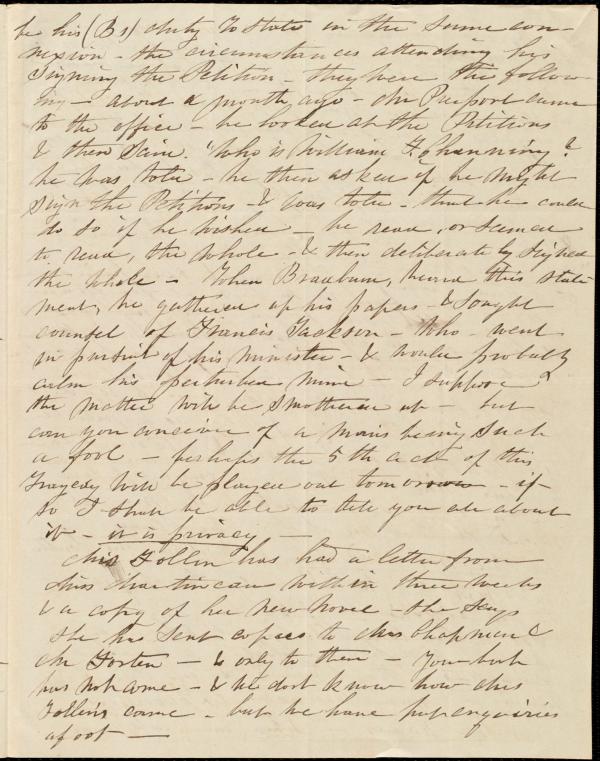 be his (B's) duty to state in the same con-
nexion - the circumstances attending his
signing the Petition - they were the follow-
ing - about a month ago - Mr Pierpont came
to the office - he looked at the Petitions
& then said. "Who is William F. Channing?
he was told - he then asked if he might
sign the Petitions - & was told - that he could
do so if he wished - he read, or seemed
to read, the whole - & then deliberately signed
the whole - When Bradburn, heard this state-
ment, he gathered up his papers - & sought
counsel of Francis Jackson - who - went
in pursuit of his minister - & would probably
calm his perturbed mind - I suppose
the matter will be smothered up - but
can you conceive of a man's being such
a fool - perhaps the 5th act of this
Tragedy will be played out tomorrow - if
so I shall be able to tell you all about
it - it is privacy -
Mrs Follen has had a letter from
Miss Martineau within three weeks
& a copy of her new novel - She says
she has sent copies to Mrs Chapman &
Mr Forten - & only to them - Your book
has not come - & we dont know how Mrs
Follen's came - but we have put enquiries
afoot -